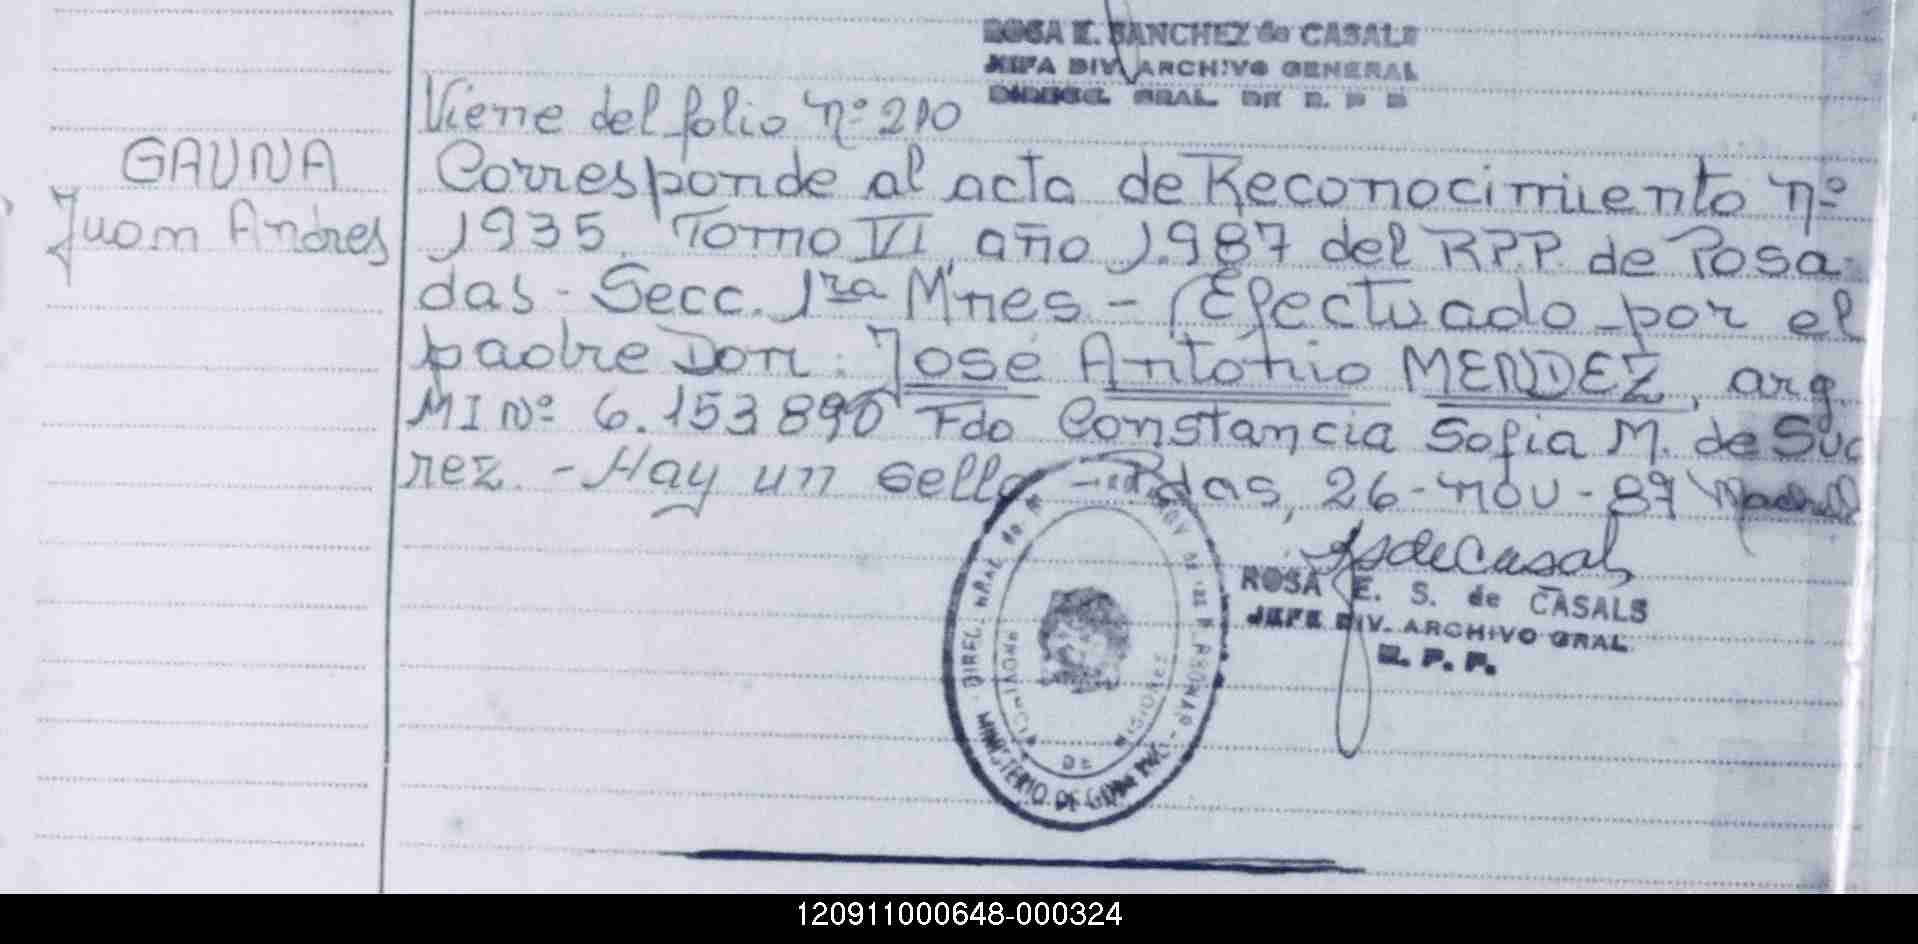 ROSA E. SANCHEZ de CASALS
JEFA DIV. ARCHIVO GENERAL
DIRECC. GRAL. DE R. P. P.
Viene del folio nº 210
GAUNA
Juan Andres
Corresponde al acta de Reconocimiento nº
1935. Tomo VI, año 1.987 del R.P.P. de Posa-
das - Secc. 1ra M'nes - Efectuado por el
padre Don: José Antonio MENDEZ, arg.
MI Nº 6.153890 Fdo Constancia Sofia M. de Sua
rez. - Hay un sello - Pdas, 26 - nov - 87
ROSA E. S. de CASALS
JEFE DIV. ARCHIVO GRAL.
R. P. P.
PROVINCIA DE MISIONES
MINISTERIO DE
120911000648-000324